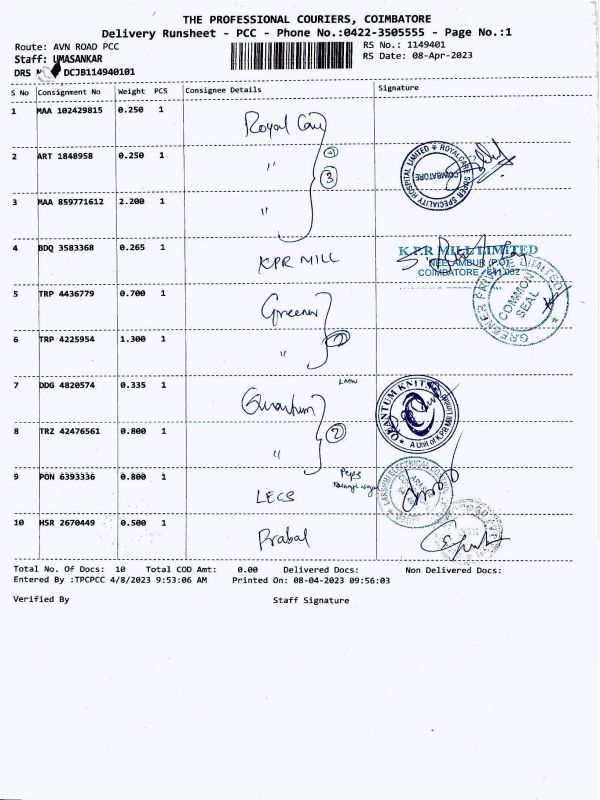 THE PROFESSIONAL COURIERS, COIMBATORE
Delivery Runsheet - PCC - Phone No.:0422-3505555 - Page No.:1
Route: AVN ROAD PCC
RS No.: 1149401
Staff: UMASANKAR
RS Date: 08-Apr-2023
DRS DCJB114940101
S No Consignment No Weight PCS Consignee Details Signature
1 MAA 102429815 0.250 1 Royal Care
2 ART 1848958 0.250 1 "
3
ROYALCARE SUPER SPECIALITY HOSPITAL LIMITED
COIMBATORE
3 MAA 859771612 2.200 1 "
4 BDQ 3583368 0.265 1 KPR MILL
K.P.R MILL LIMITED
NEELAMBUR (P.O)
COIMBATORE - 641 062
5 TRP 4436779 0.700 1 Greener
COMMON SEAL
6 TRP 4225954 1.300 1 "
7 DDG 4820574 0.335 1 Quantum
LMW
QUANTUM KNITS
A Unit of K.P.R Mill Limited
8 TRZ 42476561 0.800 1 "
2
9 PON 6393336 0.800 1 LECS
Peps
10 HSR 2670449 0.500 1 Prabal
Total No. Of Docs: 10 Total COD Amt: 0.00 Delivered Docs: Non Delivered Docs:
Entered By :TPCPCC 4/8/2023 9:53:06 AM Printed On: 08-04-2023 09:56:03
Verified By Staff Signature